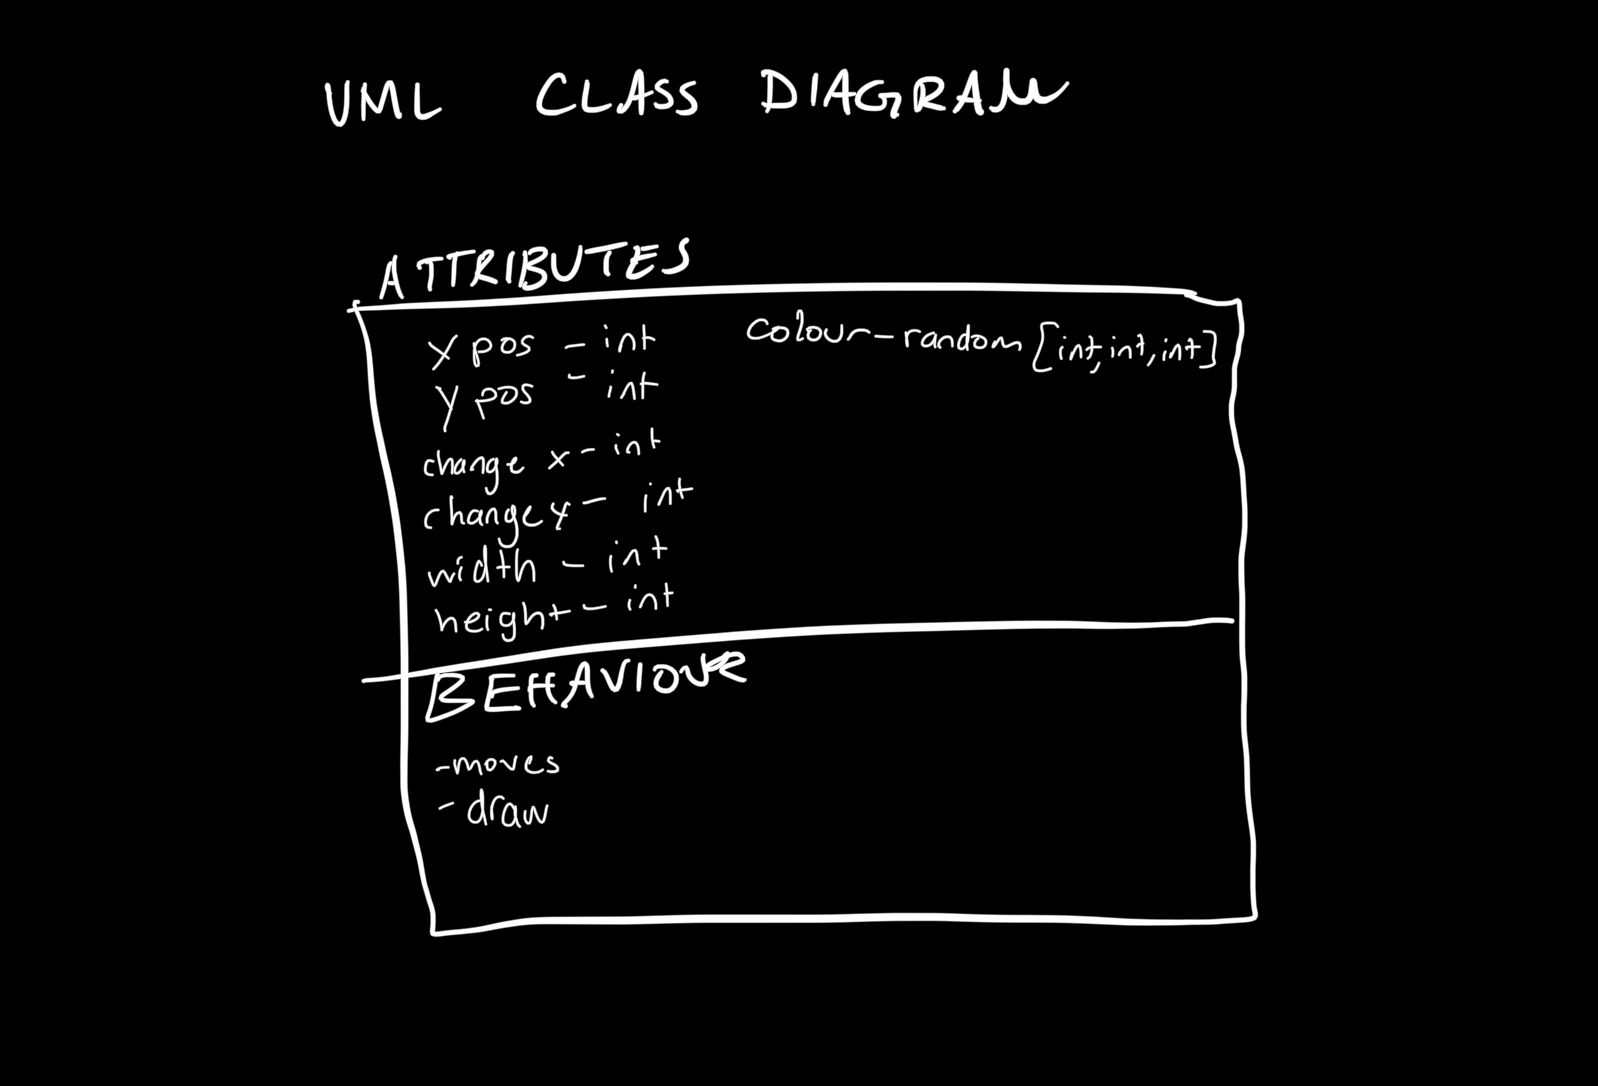 UML CLASS DIAGRAM
ATTRIBUTES
x pos - int
y pos - int
change x - int
change y - int
width - int
height - int
colour - random [int, int, int]
BEHAVIOUR
- moves
- draw